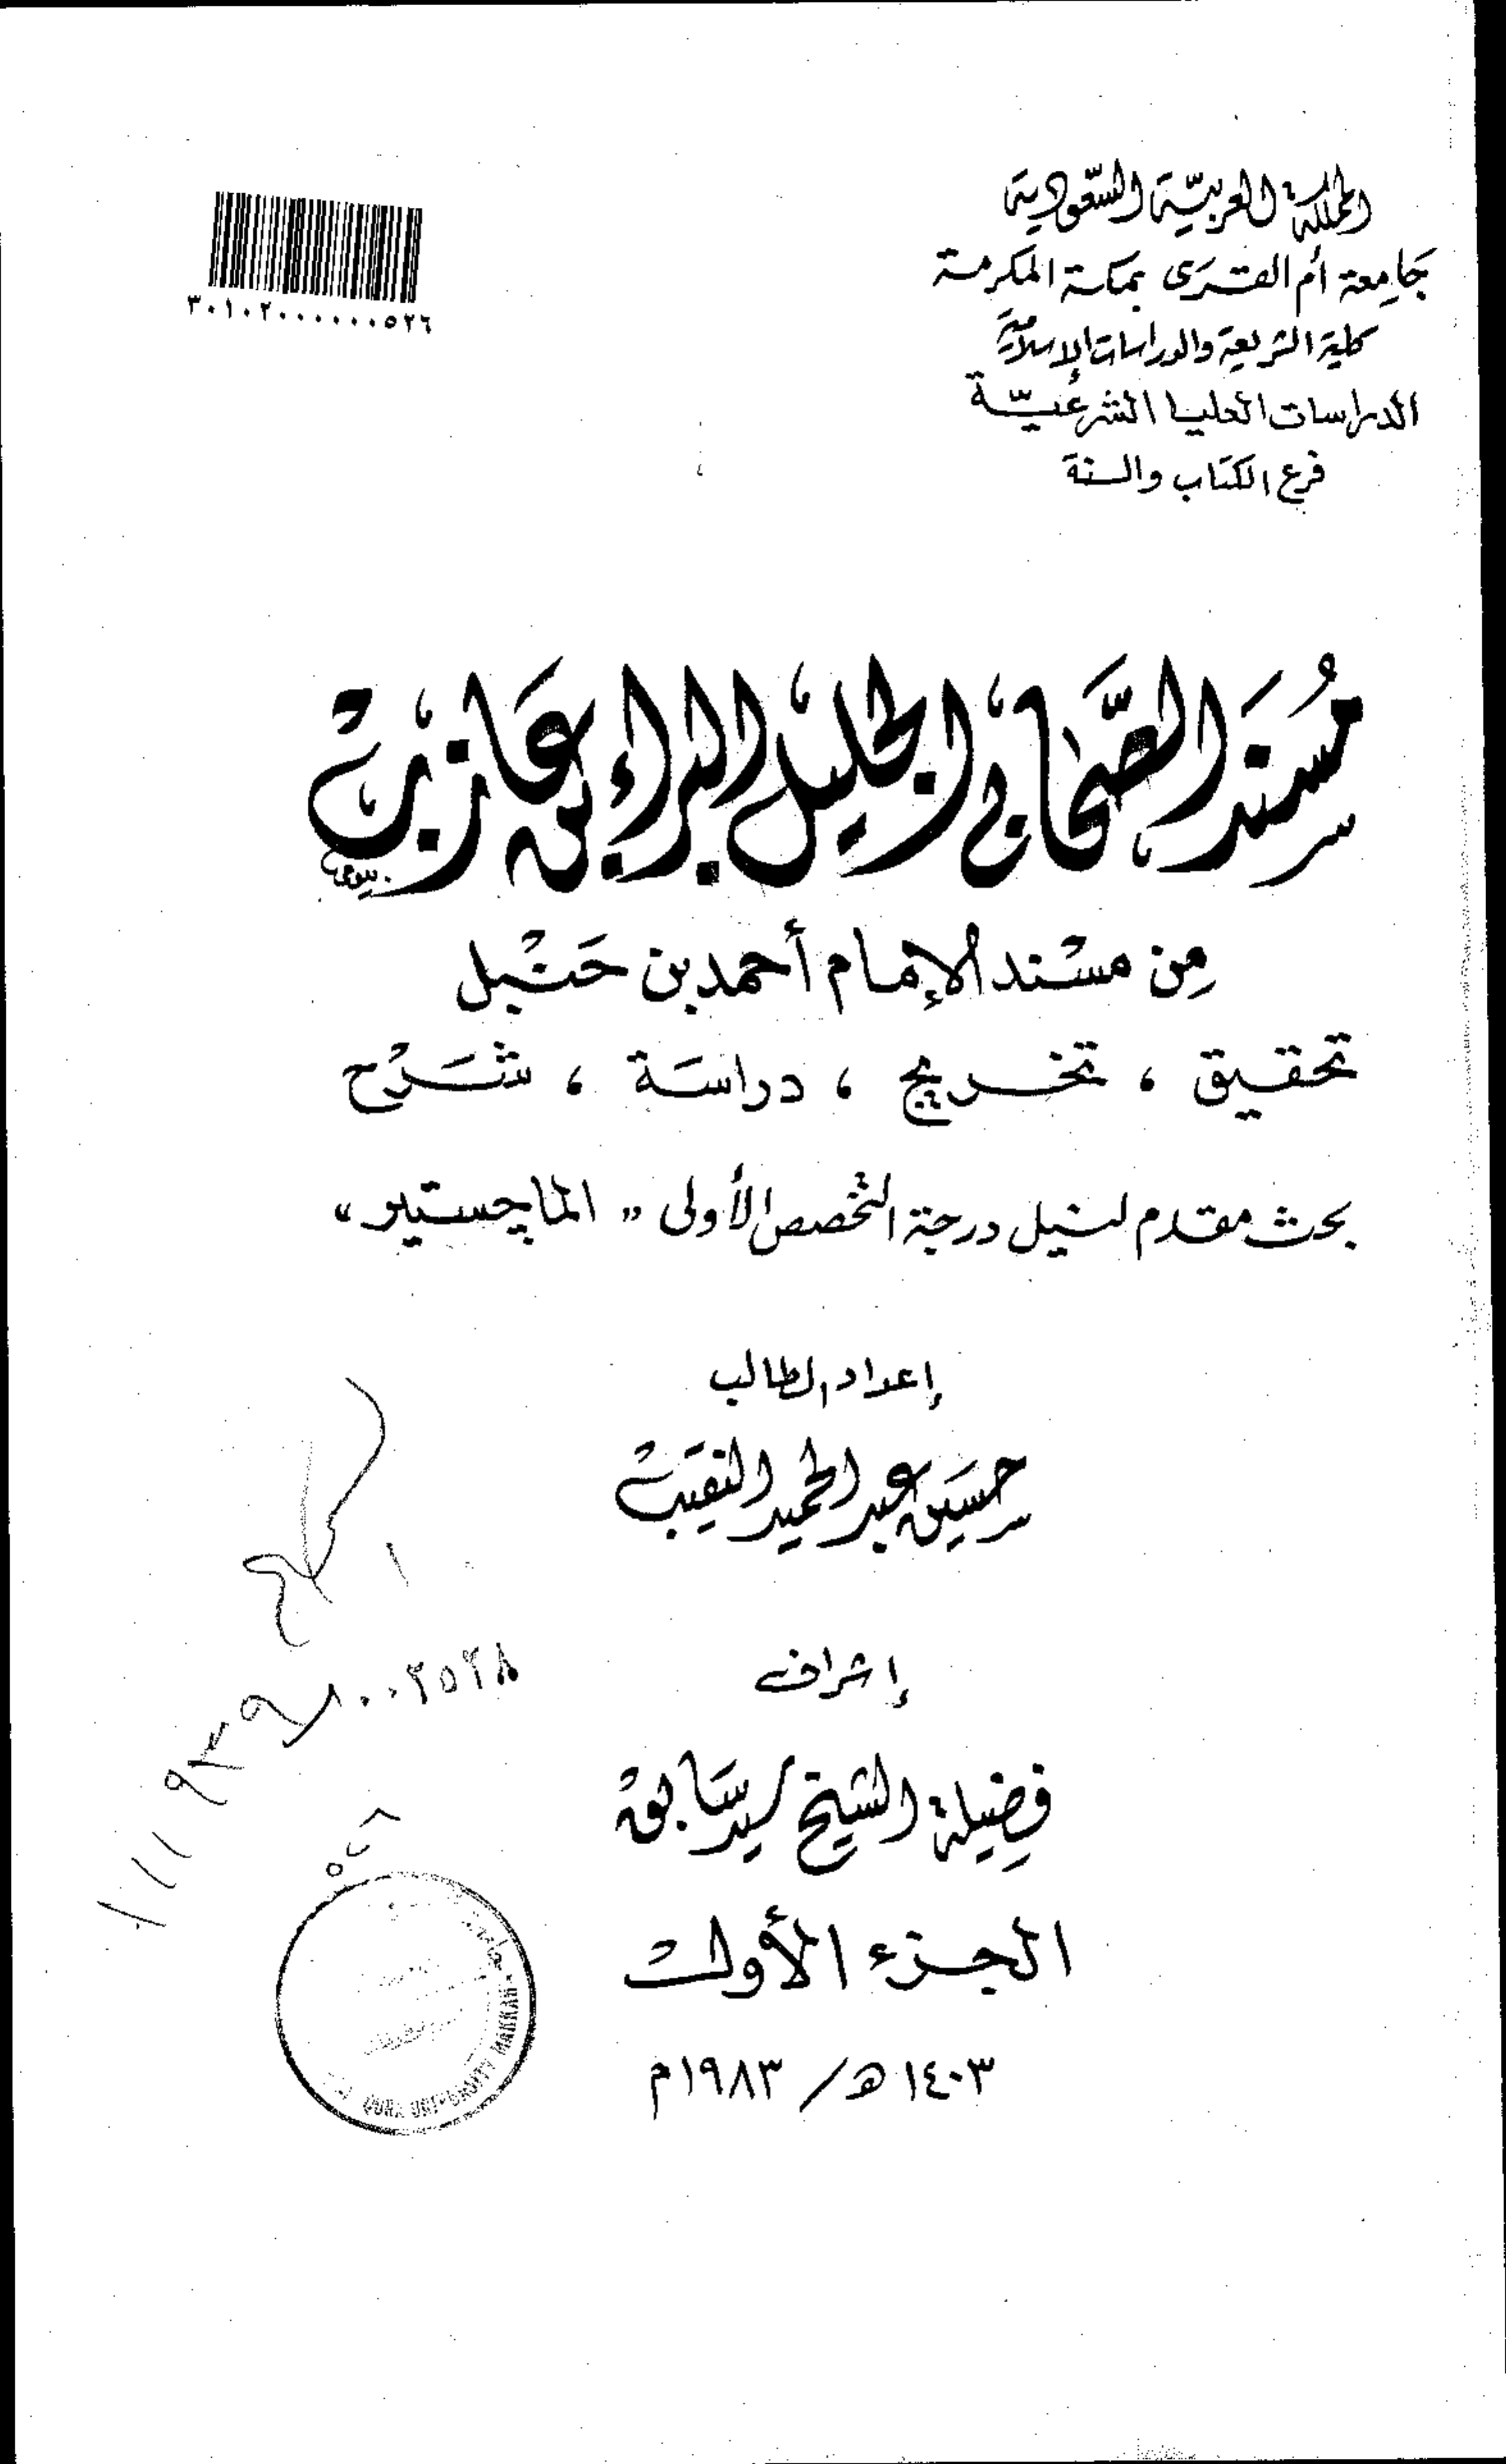 المملكة العربيّة السّعودية
جَامِعة أم القـُـرَى بمكـة المكرمـة
كلية الشريعة والدراسات الإسلامية
الدراسات العليـا الشرعيّـة
فرع الكتاب والسنة
٣٠١٠٢٠٠٠٠٠٠٥٢٦
مُسْنَد الصَّحَابي الجليل البراء بن عَازبْ
مِن مسْند الإمـام أحمد بن حَنْبل
تحقيق ، تخـريج ، دراسَـة ، شَـرْح
بحث مقدم لنيل درجة التخصص الأولى " الماجستير "
إعداد الطالب
حسَين عبد الحميد النقيب
إشراف
فضيلة الشيخ سيد سَابق
٠٠٢٥٢٨
الجـزء الأول
١٤٠٣ هـ / ١٩٨٣م